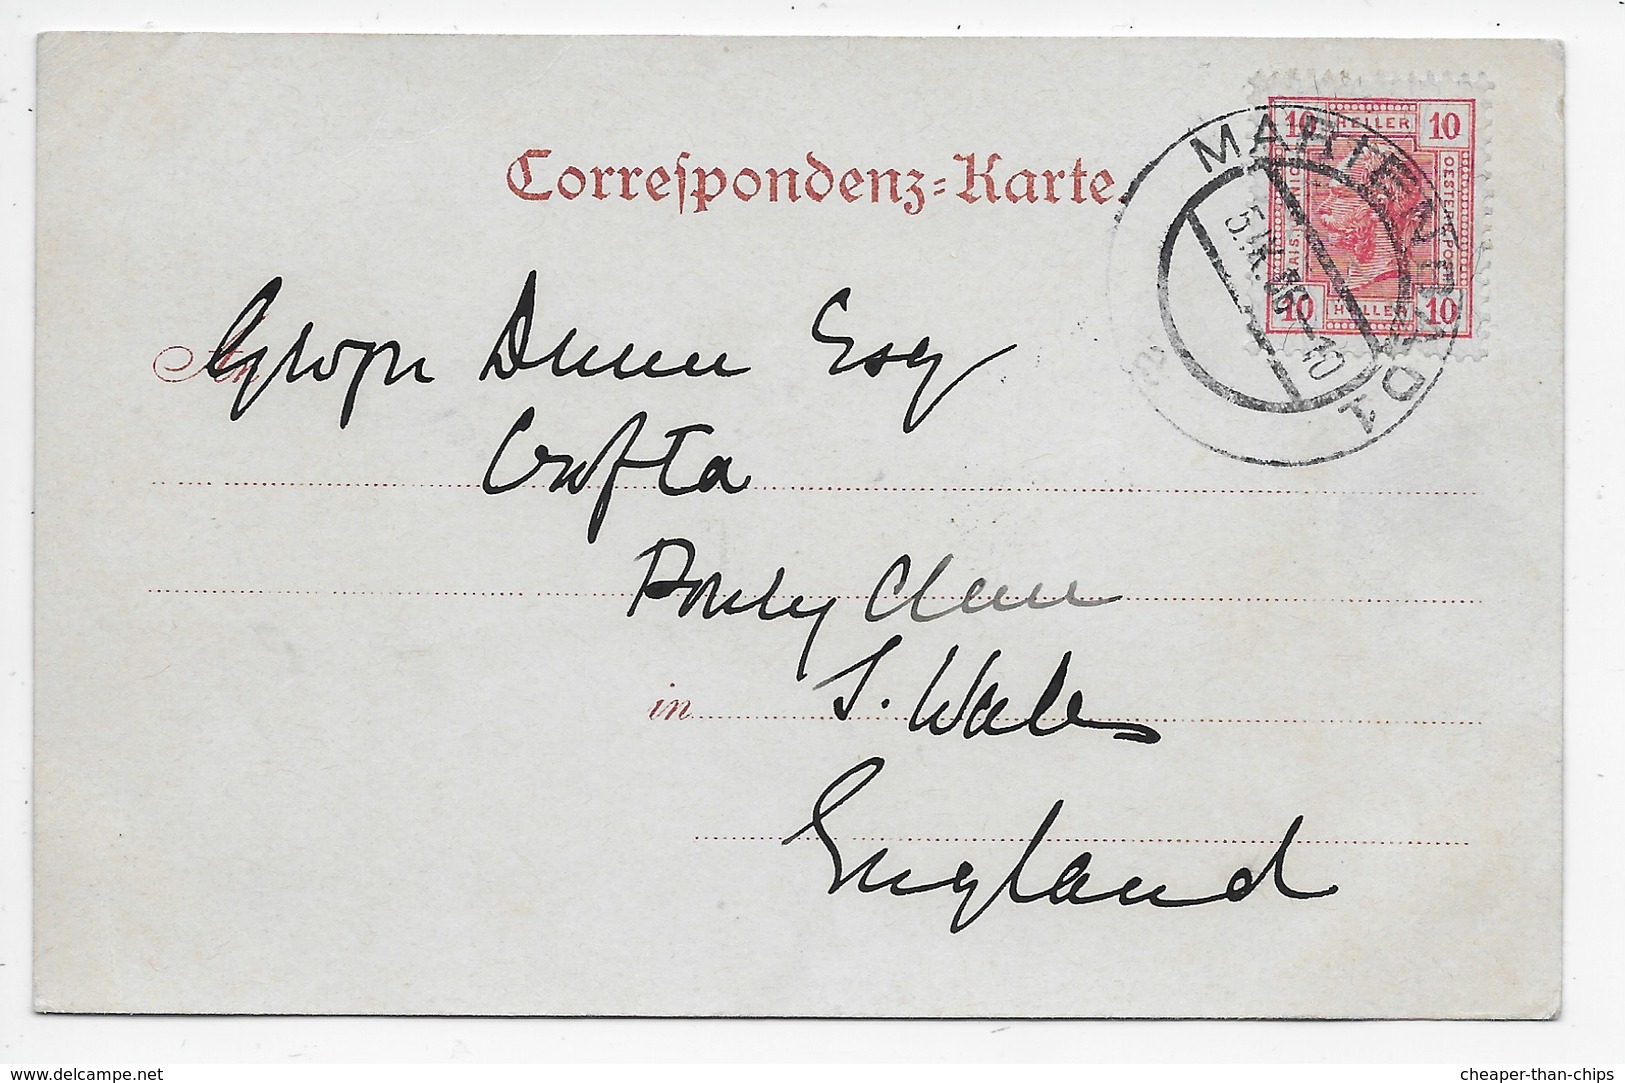 Correſpondenz=Karte
10 HELLER 10
OESTERR. POST
10 HELLER 10
MARIENBAD 1
An
Gwyn Dunn Esq
Crofta
Ponty Clun
in S. Wales
England
www.delcampe.net
cheaper-than-chips